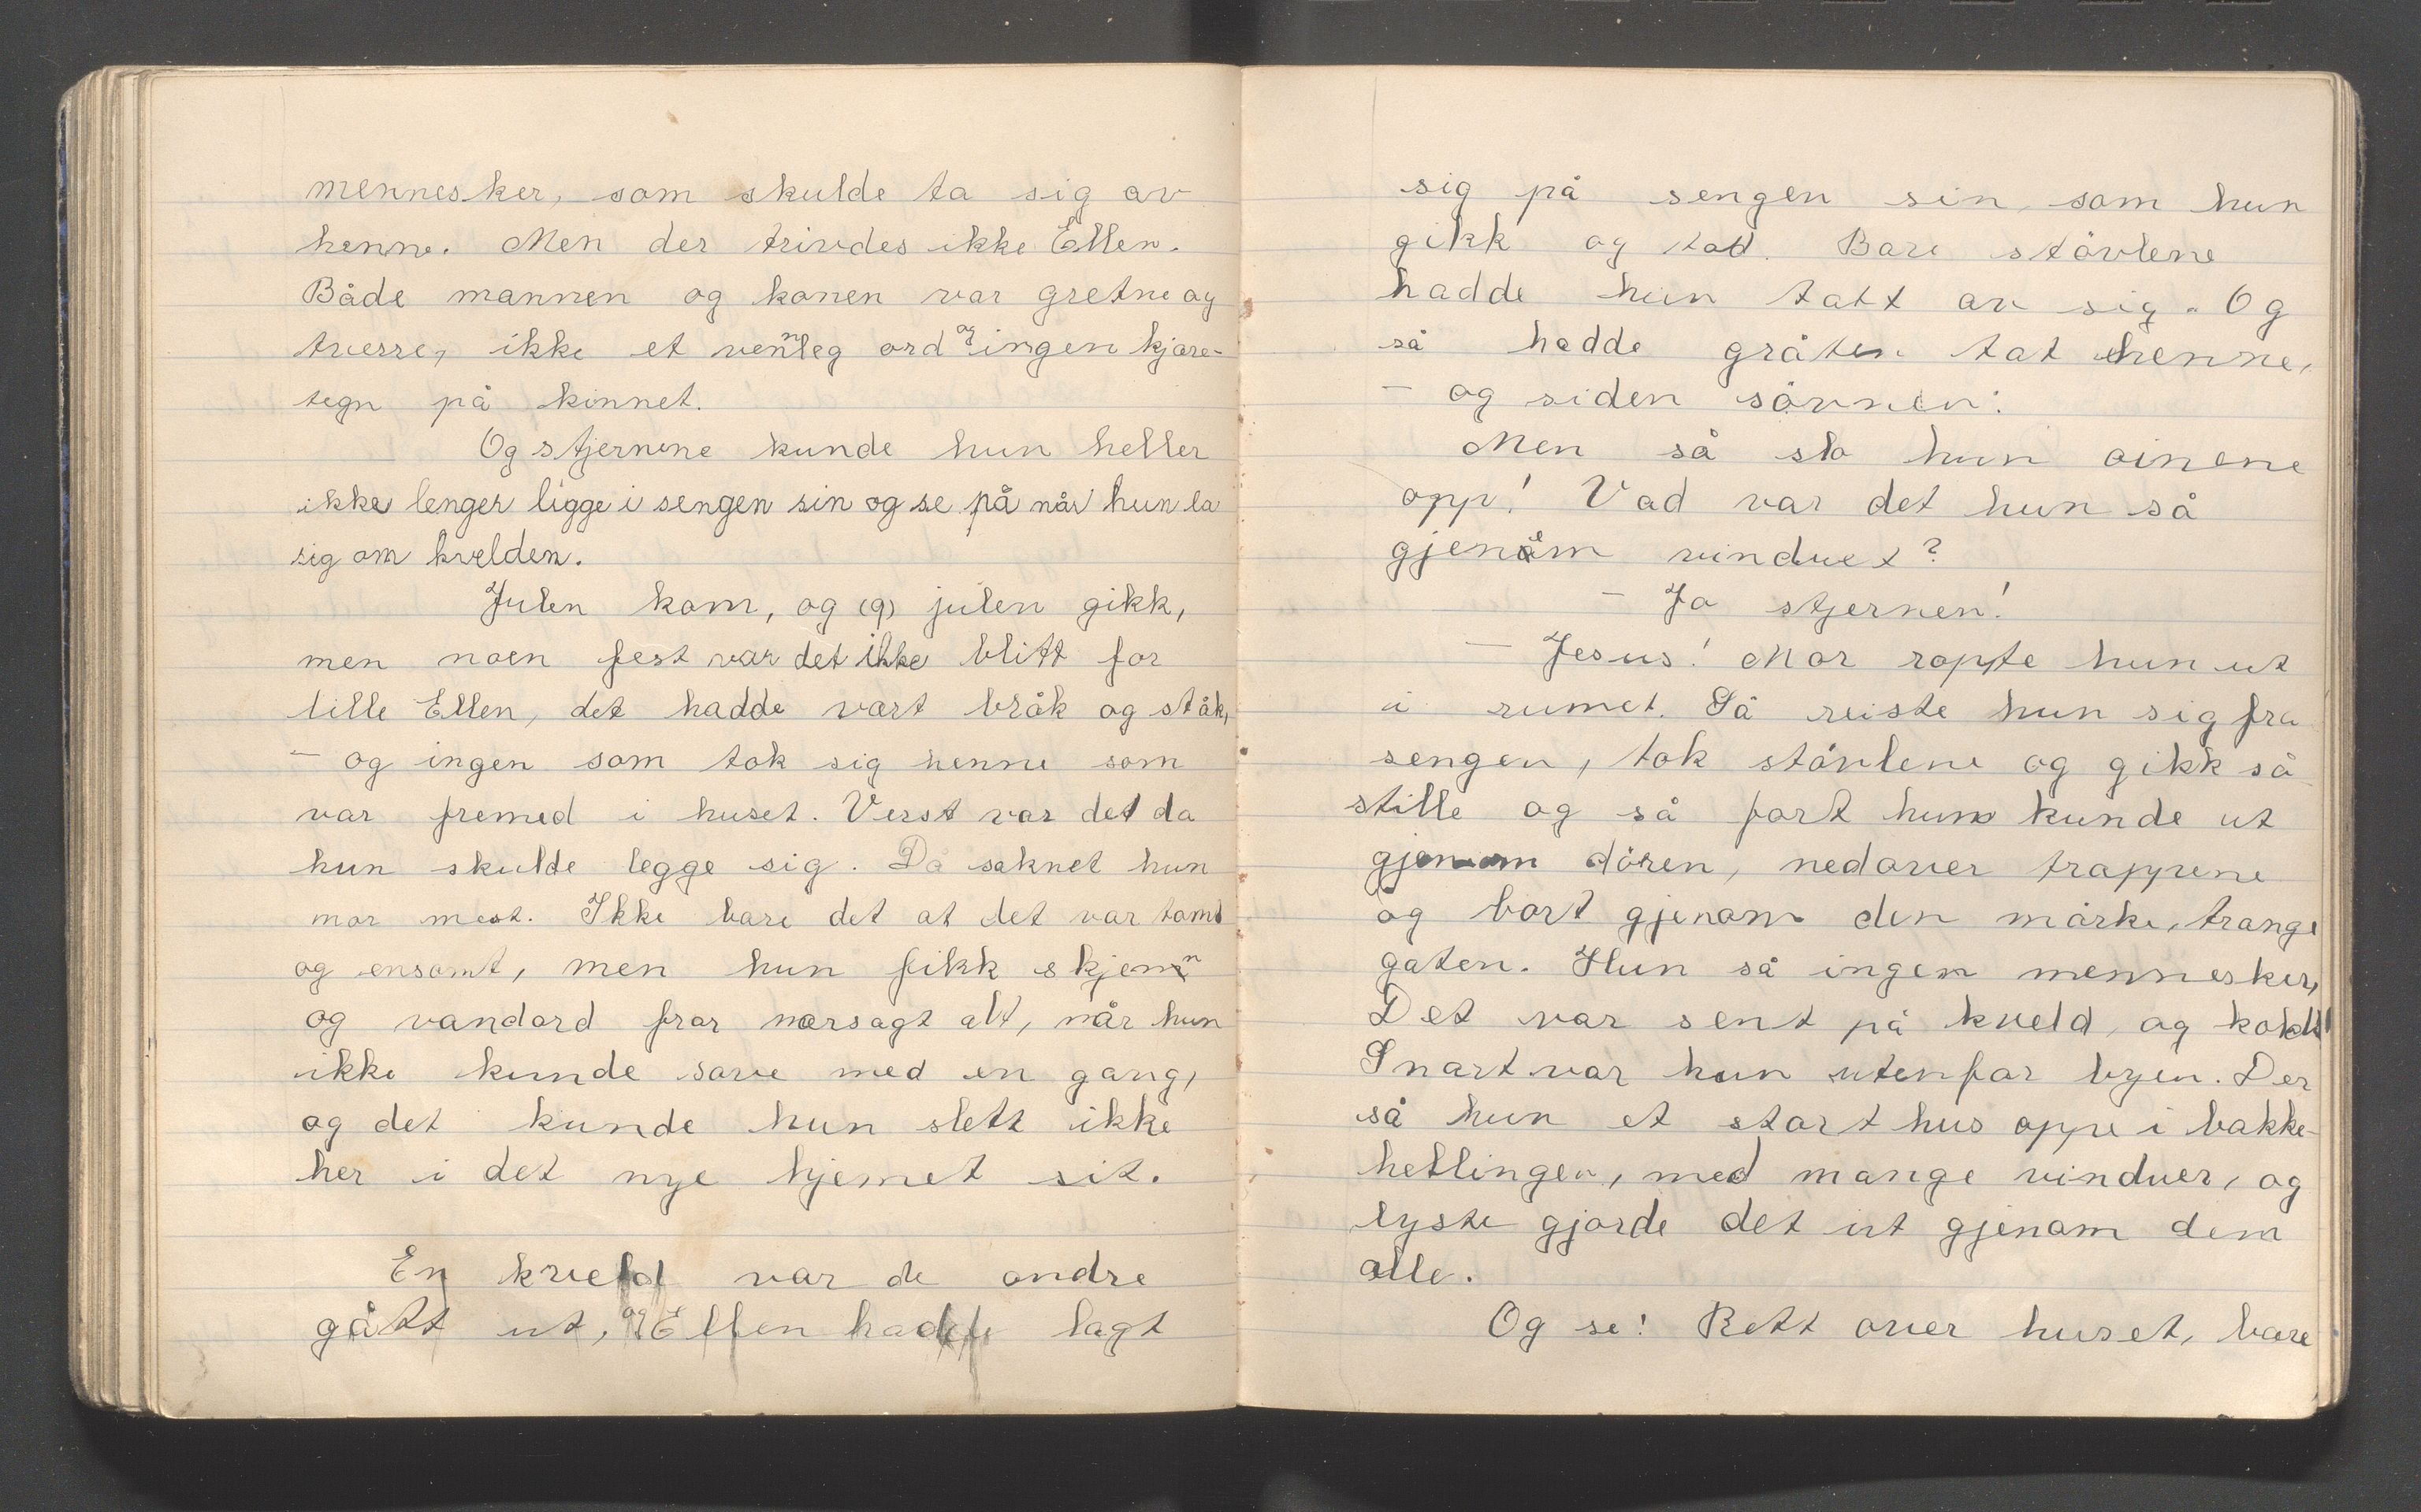 mennesker, som skulde ta sig av
henne. Men der trivdes ikke Ellen.
Både mannen og konen var gretne og
tverre, ikke et vennleg ord og ingen kjære-
tegn på kinnet.
Og stjernene kunde hun heller
ikke lenger ligge i sengen sin og se på når hun la
sig om kvelden.
Julen kom, og (9) julen gikk,
men noen fest var det ikke blitt for
lille Ellen, det hadde vært bråk og ståk,
- og ingen som tok sig henne som
var fremed i huset. Verst var det da
hun skulde legge sig. Da saknet hun
mor mest. Ikke bare det at det var tomt
og ensomt, men hun fikk skjenn
og vandord fror nærsagt alt, når hun
ikke kunde sove med en gang,
og det kunde hun slett ikke
her i det nye hjemet sit.
En kveld var de andre
gått ut, og Ellen hadde lagt
sig på sengen sin, som hun
gikk og stod. Bare stövlene
hadde hun tatt av sig. Og
så hadde gråten tat henne,
- og siden sövnen.
Men så slo hun öinene
opp! Vad var det hun så
gjenom vinduet?
- Jo stjernen!
- Jesus! Mor ropte hun ut
i rumet. Så reiste hun sig fra
sengen, tok stövlene og gikk så
stille og så fort hun kunde ut
gjenom dören, nedover trappene
og bort gjenom den mörke, trange
gaten. Hun så ingen mennesker,
Det var sent på kveld, og koldt!
Snart var hun utenfor byen. Der
så hun et stort hus oppe i bakke-
hellingen, med mange vinduer, og
lyste gjorde det ut gjenom dem
alle.
Og se! Rett over huset, bare